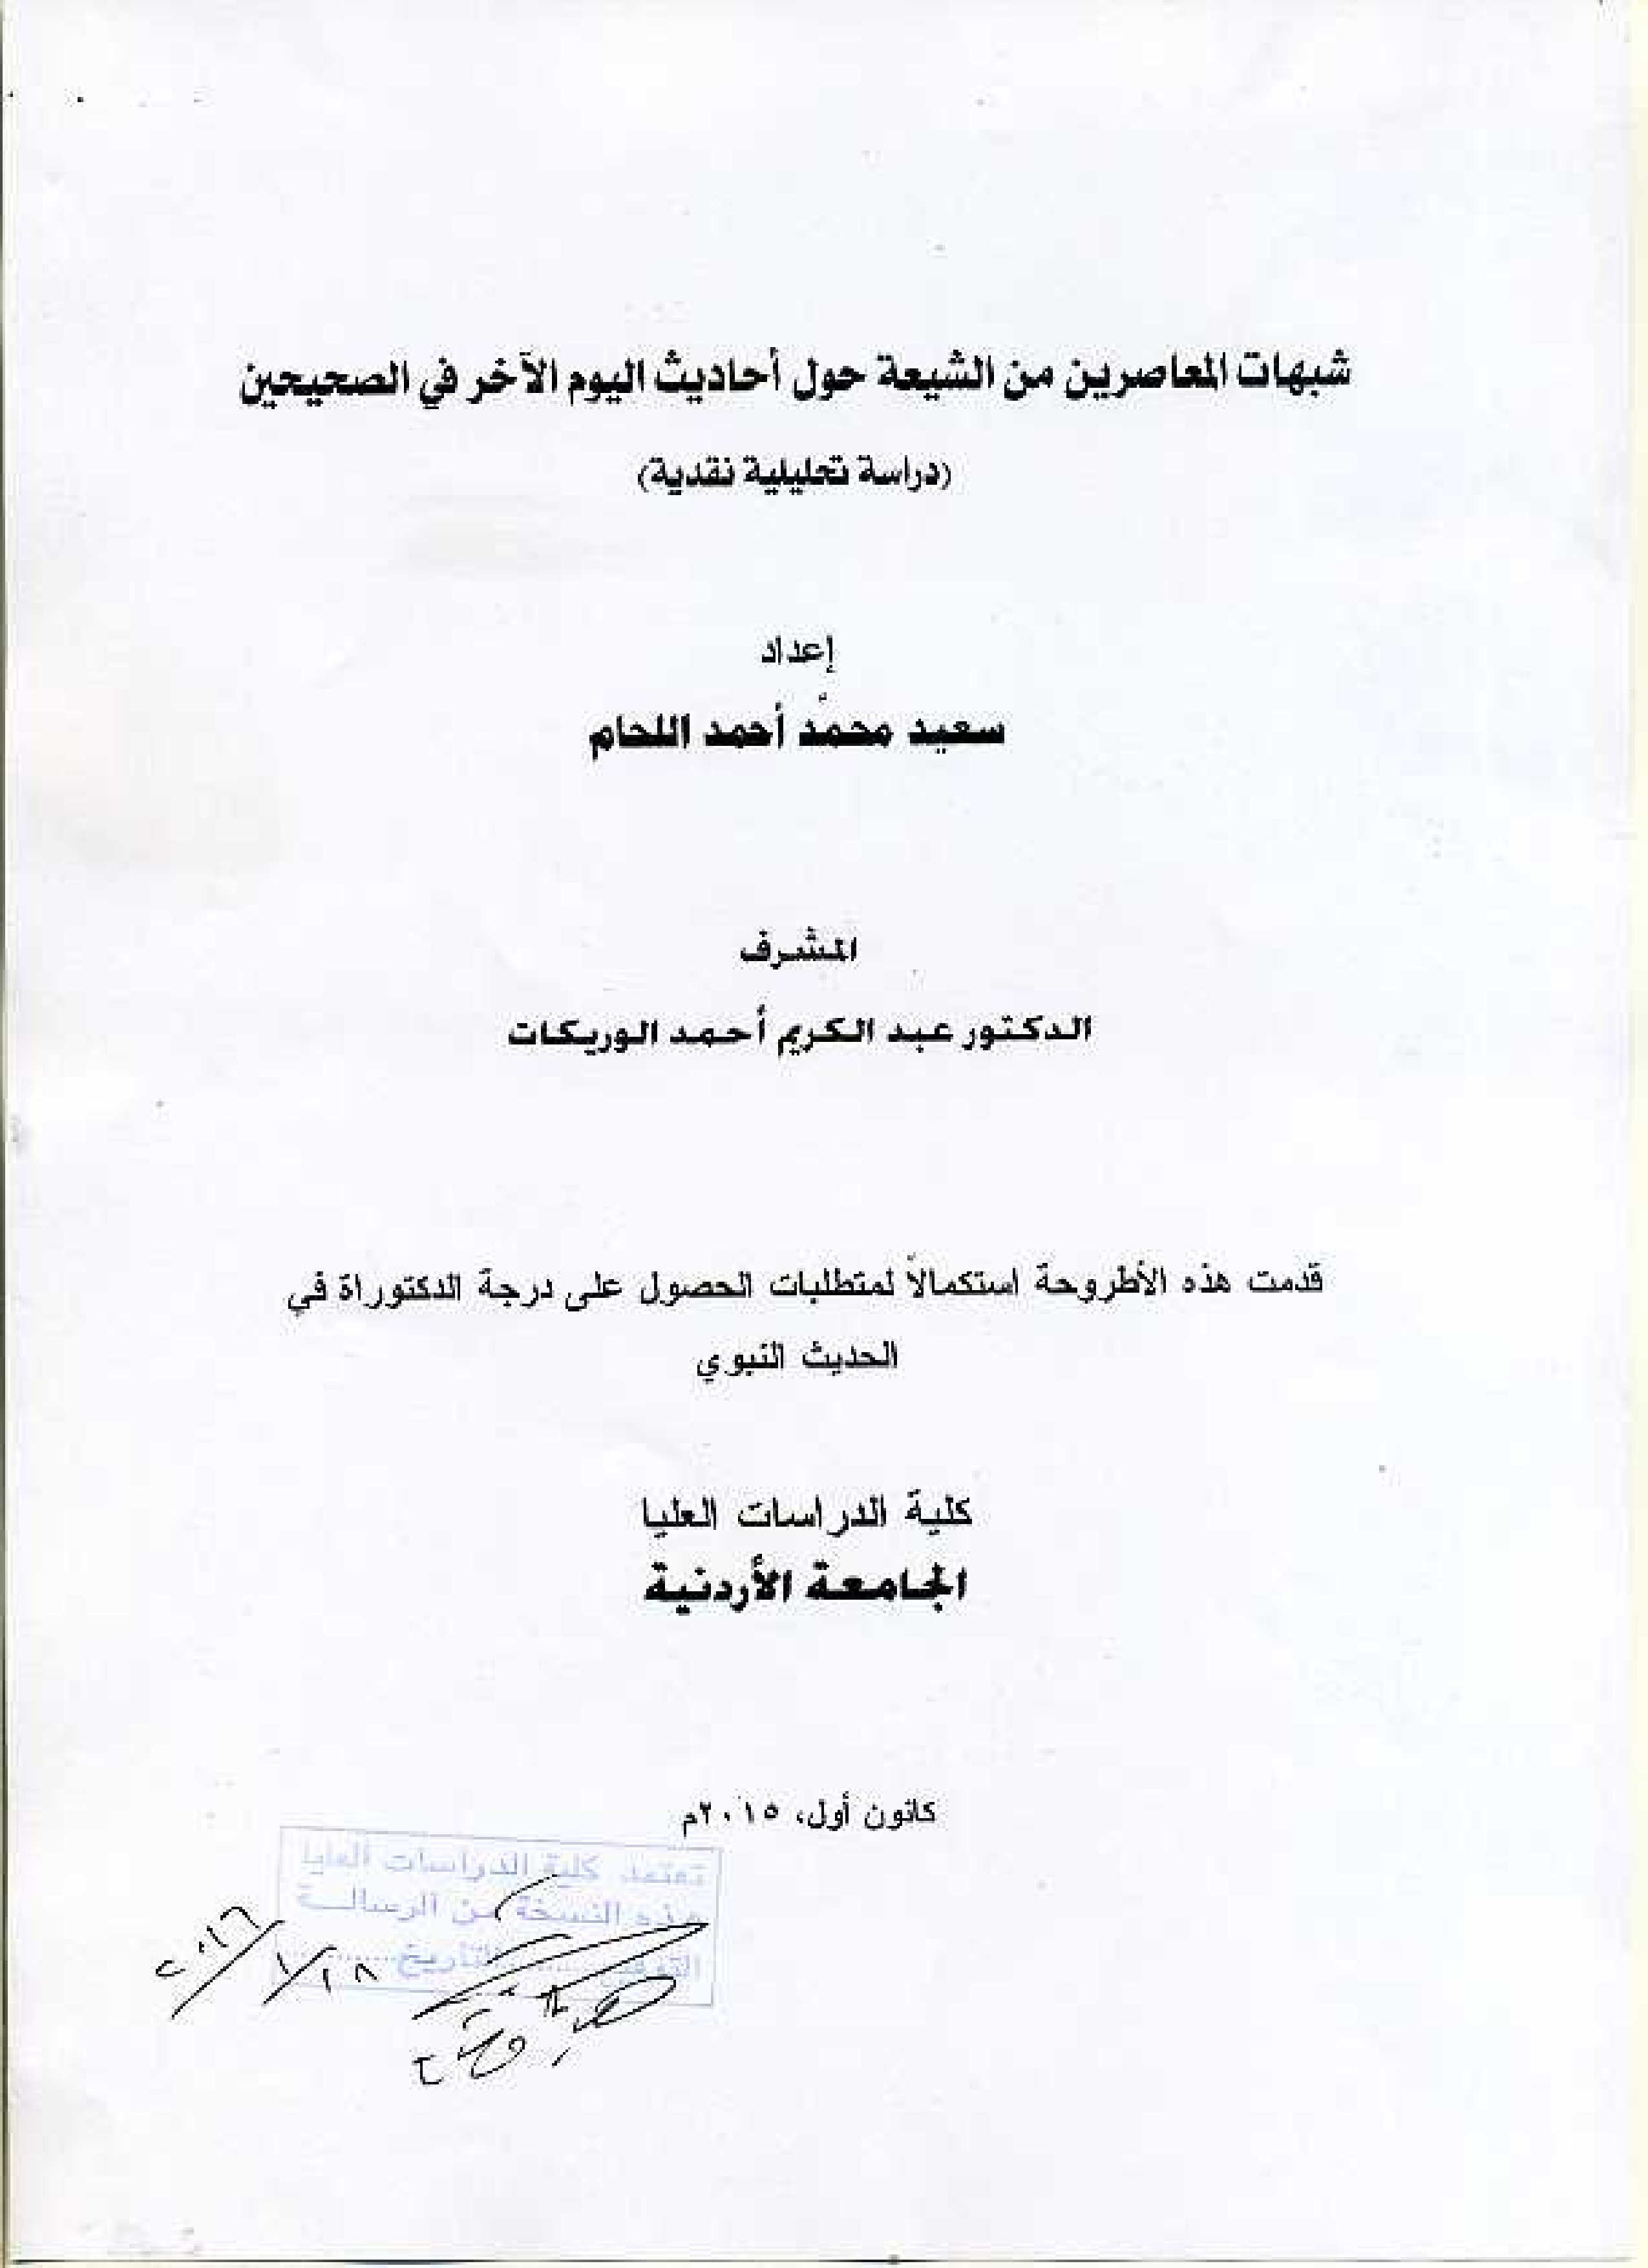 شبهات المعاصرين من الشيعة حول أحاديث اليوم الآخر في الصحيحين
(دراسة تحليلية نقدية)
إعداد
سعيد محمّد أحمد اللحام
المشرف
الدكتور عبد الكريم أحمد الوريكات
قدمت هذه الأطروحة استكمالاً لمتطلبات الحصول على درجة الدكتوراة في
الحديث النبوي
كلية الدراسات العليا
الجامعة الأردنية
كانون أول، ٢٠١٥م
تعتمد كلية الدراسات العليا
هذه النسخة من الرسالــة
التوقيع ........ التاريخ ........
٢٠١٦/١/١٨